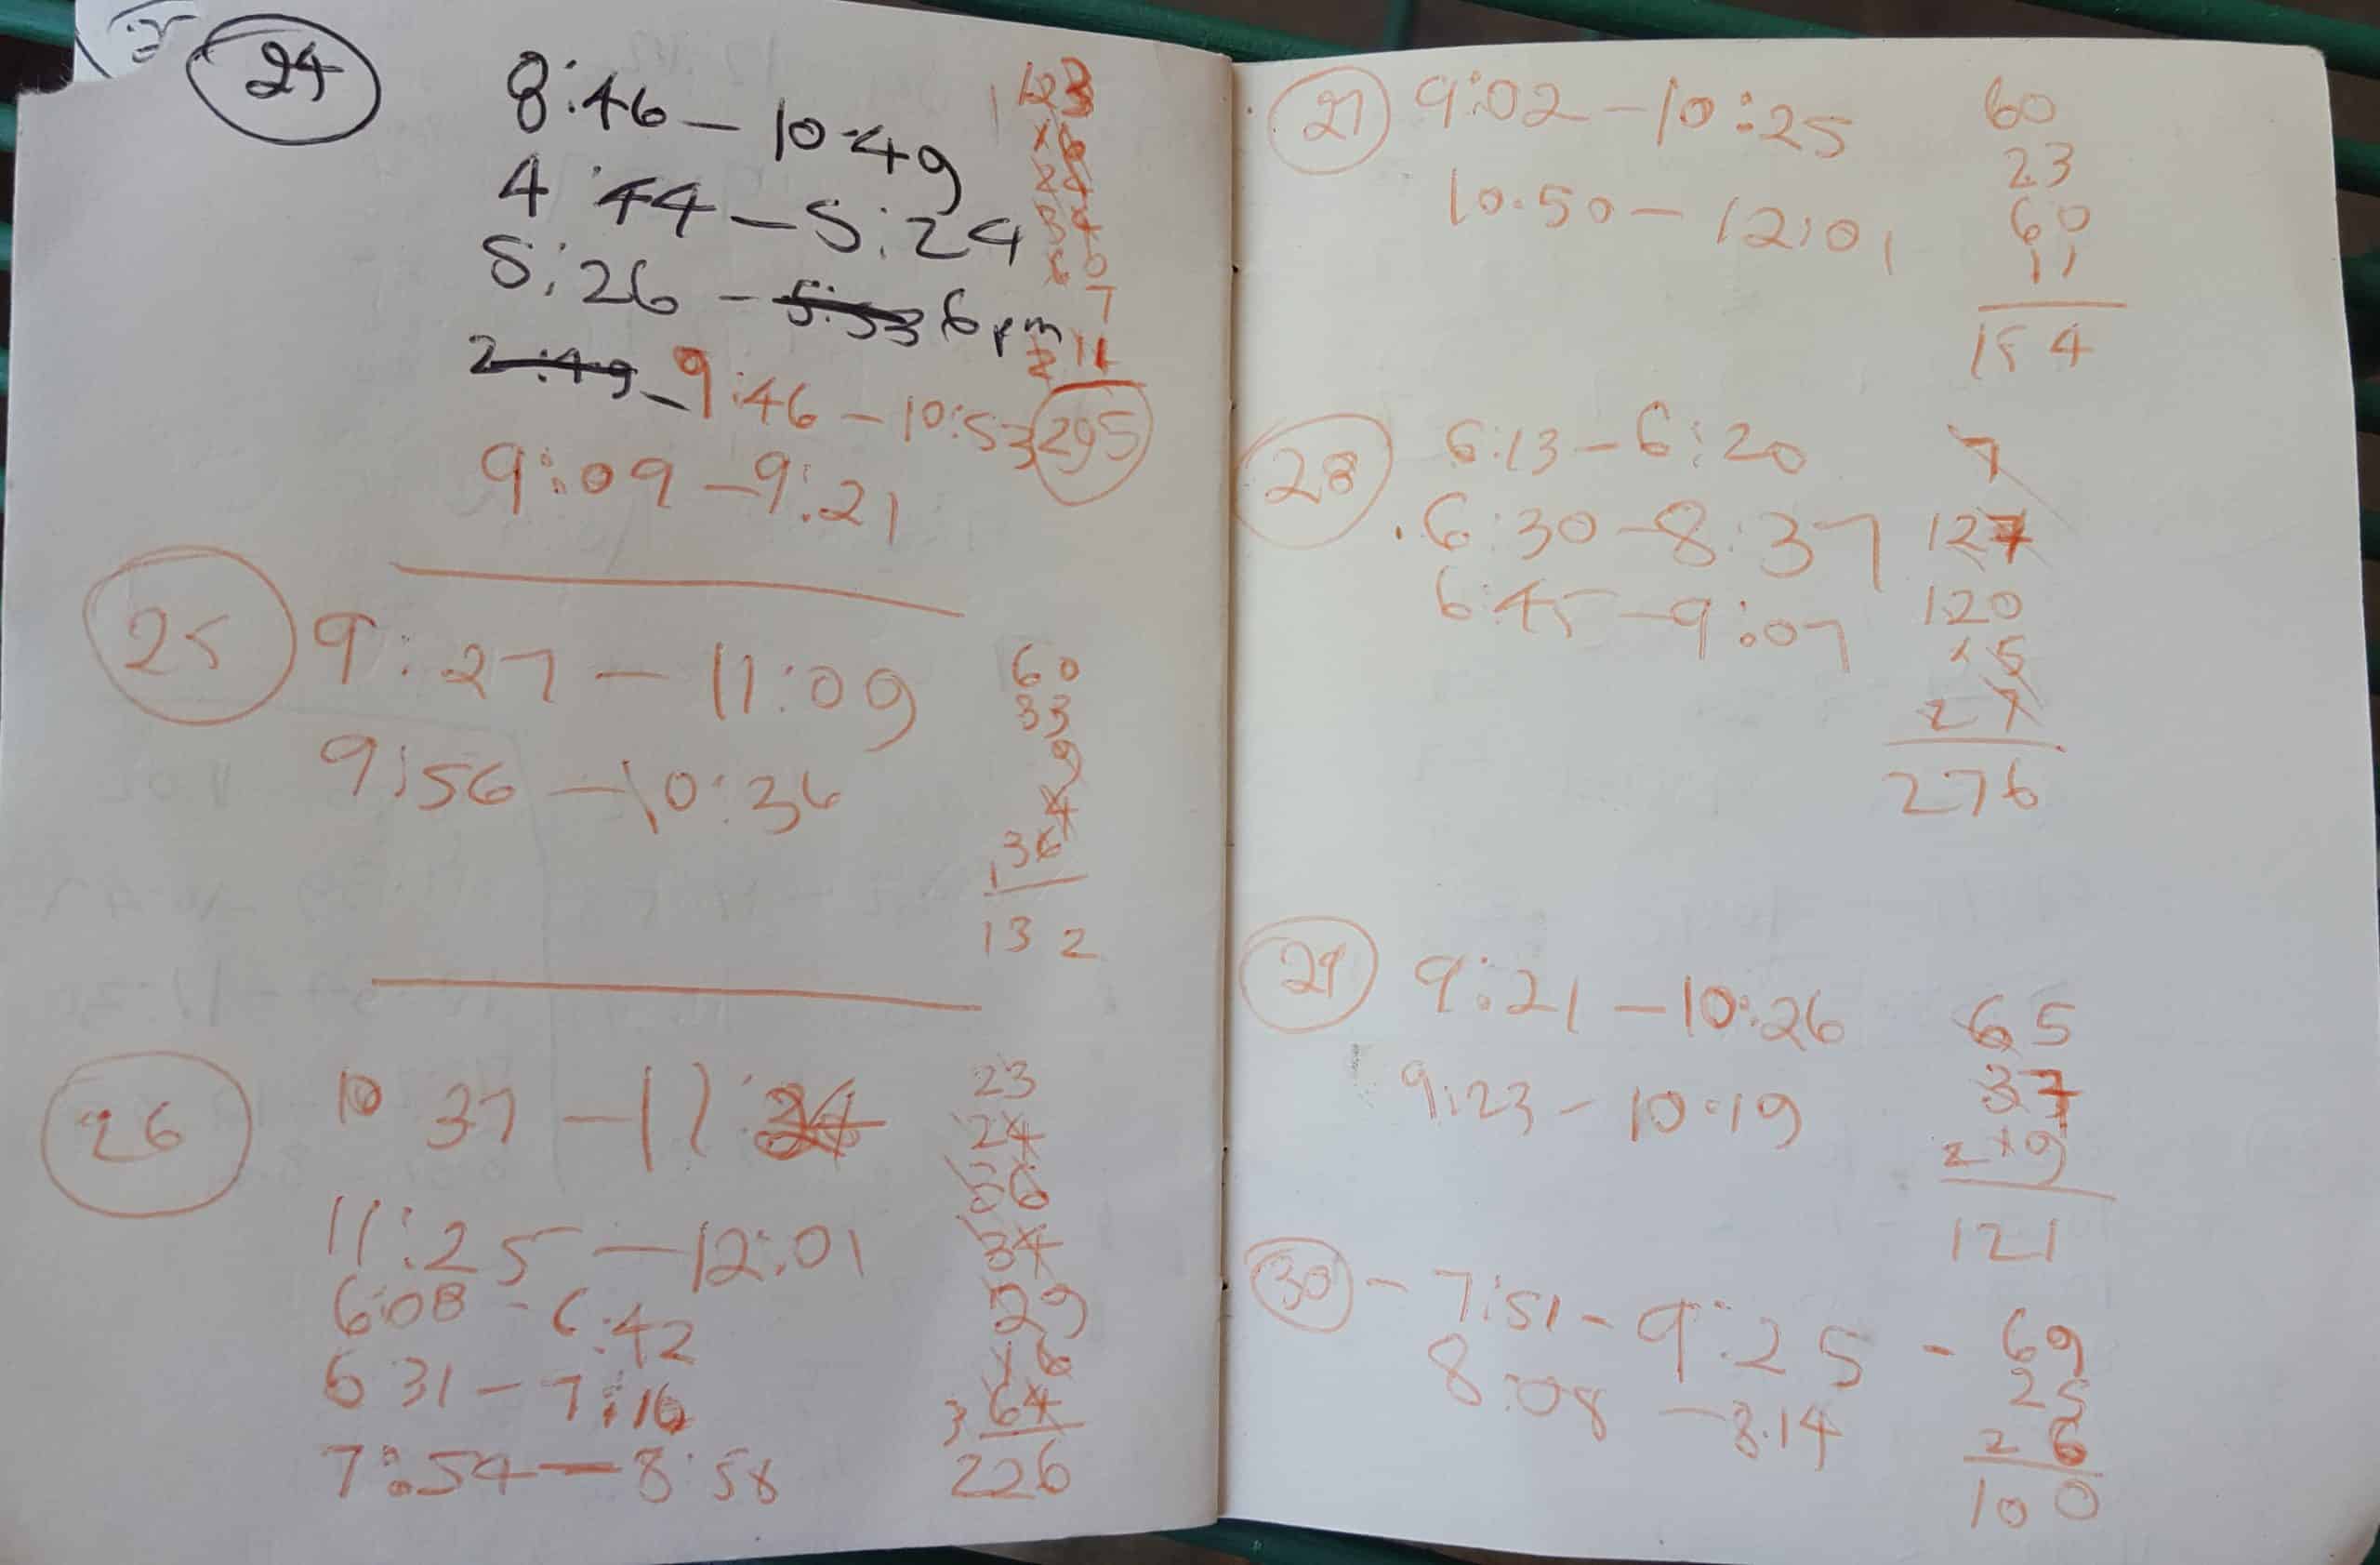 24 8:46 - 10:49
4:44 - 5:24
5:26 - 5:53 6pm
2:49 - 9:46 - 10:53
9:09 - 9:21
123
7
11
295
25 9:27 - 11:09
9:56 - 10:36
60
33
9
4
36
132
26 10 37 - 11:24
11:25 - 12:01
6:08 - 6:42
6 31 - 7:16
7:54 - 8:58
23
24
36
34
29
16
64
3
226
27 9:02 - 10:25
10.50 - 12:01
60
23
60
11
154
28 6:13 - 6:20
6:30 - 8:37
6:45 - 9:07
7
127
120
15
27
276
29 9:21 - 10:26
9:23 - 10:19
65
37
219
121
30 - 7:51 - 9:25 - 69
8:08 - 8.14
25
26
100